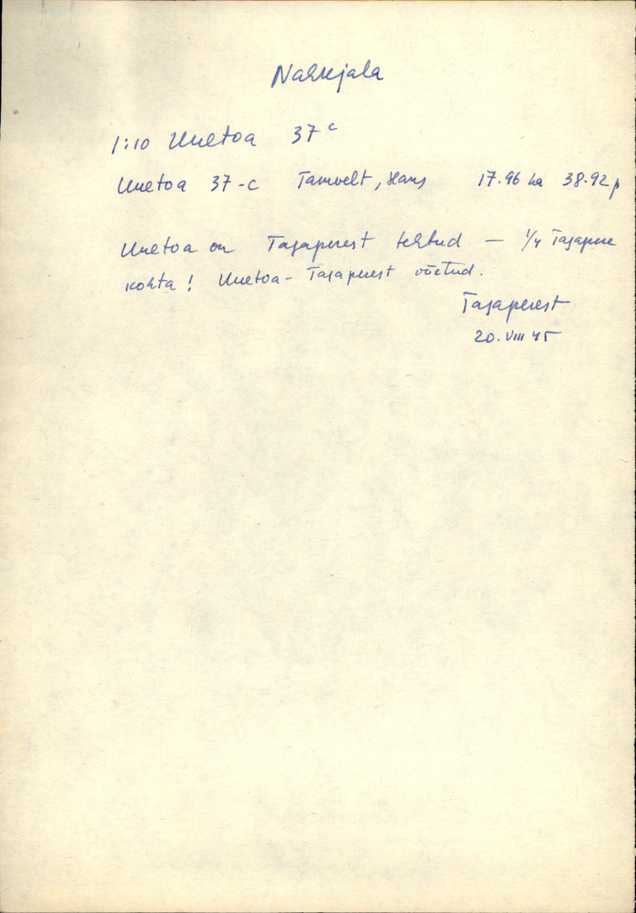 Nahkjala
1:10 Unetoa 37 c
Unetoa 37-c Tamvelt, Hans 17.96 ha 38.92 p
Unetoa on Tagaperest tehtud — 1/4 Tagapere
kohta! Unetoa - Tagaperest võetud.
Tagaperest
20. VIII 45